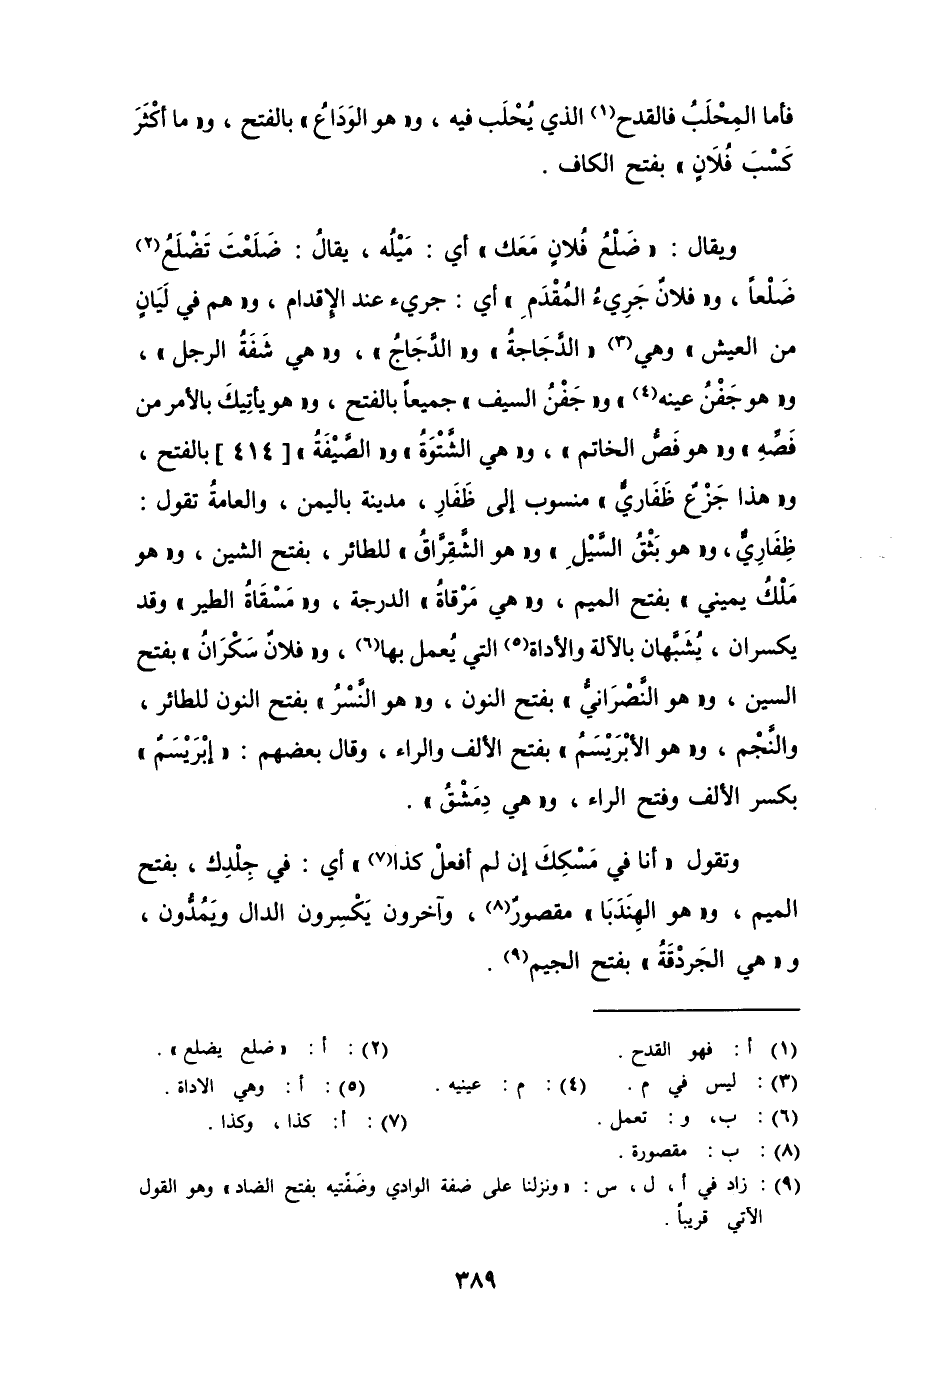 فأما المِحْلَبُ فالقدح(١) الذي يُحْلَب فيه ، و« هو الوَدَاعُ » بالفتح ، و« ما أكْثَرَ
كَسْبَ فُلَانٍ » بفتح الكاف .
ويقال : « ضَلْعُ فُلانٍ مَعَك » أي : مَيْلُه ، يقالُ : ضَلَعْتَ تَضْلَعُ(٢)
ضَلْعاً ، و« فلانٌ جَرِيءُ المُقْدَمِ » أي : جريء عند الإقدام ، و« هم في لَيَانٍ
من العيش » وهي(٣) « الدَّجَاجةُ » و« الدَّجَاجُ » ، و« هي شَفَةُ الرجل » ،
و« هو جَفْنُ عينه(٤) » و« جَفْنُ السيف » جميعاً بالفتح ، و« هو يأتِيكَ بالأمر من
فَصِّهِ » و« هو فَصُّ الخاتم » ، و« هي الشَّتْوَةُ » و« الصَّيْفَةُ » [ ٤١٤ ] بالفتح ،
و« هذا جَزْعٌ ظَفَاريٌّ » منسوب إلى ظَفَارِ ، مدينة باليمن ، والعامةُ تقول :
ظِفَارِيٌّ ، و« هو بَثْقُ السَّيْلِ » و« هو الشَّقِرَّاقُ » للطائر ، بفتح الشين ، و« هو
مَلْكُ يميني » بفتح الميم ، و« هي مَرْقاةُ » الدرجة ، و« مَسْقَاةُ الطير » وقد
يكسران ، يُشَبَّهان بالآلة والأداة(٥) التي يُعمل بها(٦) ، و« فلانٌ سَكْرَانُ » بفتح
السين ، و« هو النَّصْرَانيُّ » بفتح النون ، و« هو النَّسْرُ » بفتح النون للطائر ،
والنَّجْم ، و« هو الأبْرَيْسَمُ » بفتح الألف والراء ، وقال بعضهم : « إبْرَيْسَمٌ »
بكسر الألف وفتح الراء ، و« هي دِمَشْقُ » .
وتقول « أنا في مَسْكِكَ إن لم أفعلْ كذا(٧) » أي : في جِلْدِك ، بفتح
الميم ، و« هو الهِنْدَبَا » مقصورٌ(٨) ، وآخرون يَكْسِرون الدال ويَمُدُّون ،
و « هي الجَردْقَةُ » بفتح الجيم(٩) .
(١) أ : فهو القدح . (٢) : أ : « ضلع يضلع » .
(٣) : ليس في م . (٤) : م : عينيه . (٥) : أ : وهي الاداة .
(٦) : ب ، و : تعمل . (٧) : أ : كذا ، وكذا .
(٨) : ب : مقصورة .
(٩) : زاد في أ ، ل ، س : « ونزلنا على ضفة الوادي وضَفّتيه بفتح الضاد » وهو القول
الآتي قريباً .
٣٨٩